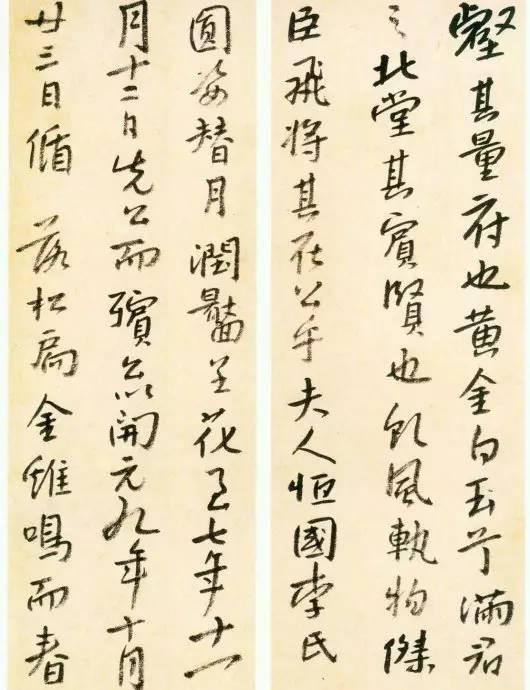 壑其量府也黄金白玉丁滿君
之北堂其賓賢也風執物傑
臣飛将其在公乎夫人恒國李氏
圓姿替月潤靨呈花七年十一
月十二日先公而殯以開元九年十月
廿三日循落松扃金雉鳴而春